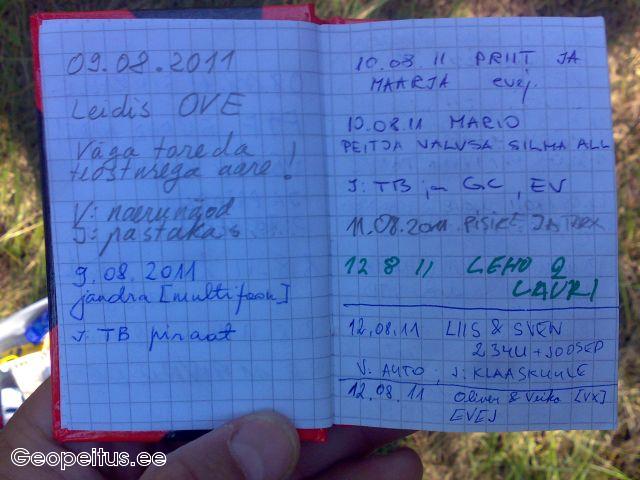 09.08.2011
Leidis OVE
Väga toreda
teostusega aare!
V: naerunäod
J: pastakas
9.08.2011
jandra [multifoon]
J: TB piraat
10.08.11 PRIIT JA
MAARJA evej.
10.08.11 MARIO
PEITJA VALVSA SILMA ALL
J: TB ja GC, EV
11.08.2011 PISIKE JA
12 8 11 LEHO &
LAURI
12.08.11 LIIS & SVEN
234U + JOOSEP
V: AUTO, J: KLAASKUULE
12.08.11 Oliver & Veiko [VX]
EVEJ
Geopeitus.ee